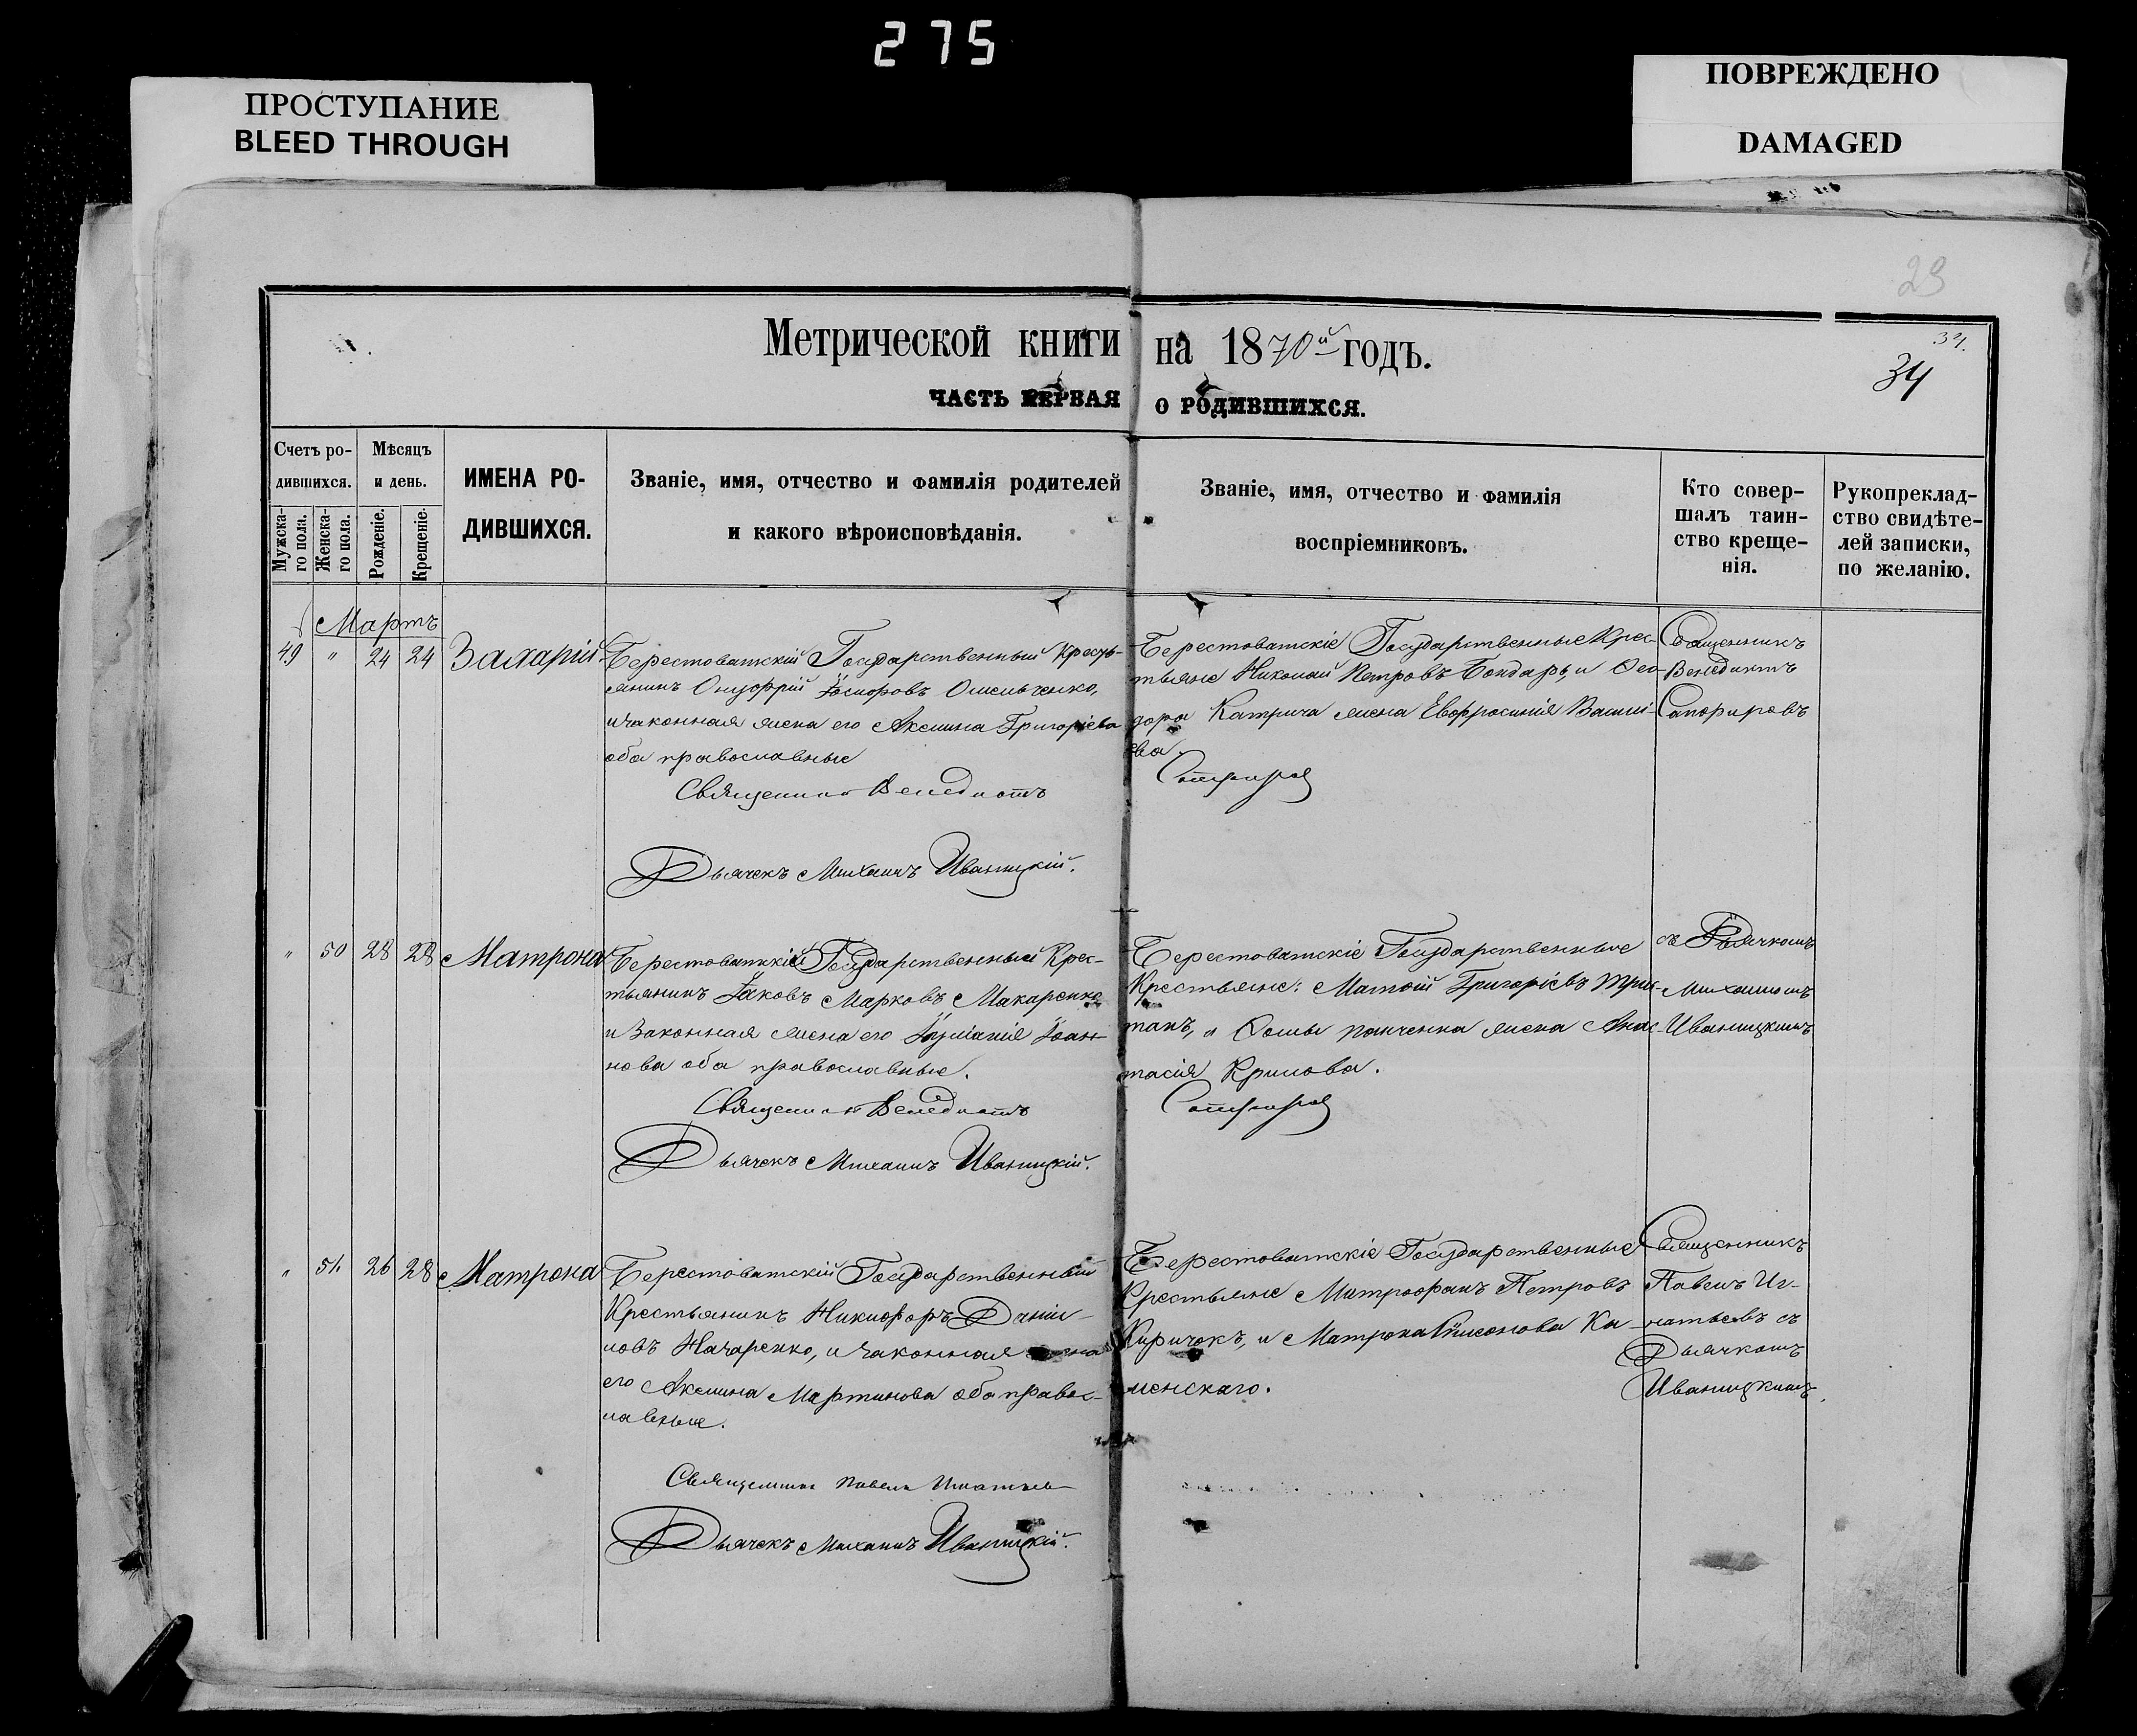 275
ПРОСТУПАНИЕ
BLEED THROUGH
ПОВРЕЖДЕНО
DAMAGED
23
34.
34
Метрической книги на 1870й годъ.
ЧАСТЬ ПЕРВАЯ О РОДИВШИХСЯ.
Счетъ ро-
дившихся.
Мужска-
го пола.
Женска-
го пола.
Мѣсяцъ
и день.
Рожденіе.
Крещеніе.
ИМЕНА РО-
ДИВШИХСЯ.
Званіе, имя, отчество и фамилія родителей
и какого вѣроисповѣданія.
Званіе, имя, отчество и фамилія
воспріемниковъ.
Кто совер-
шалъ таин-
ство креще-
нія.
Рукопреклад-
ство свидѣте-
лей записки,
по желанію.
Мартъ
49 " 24 24 Захарій
Берестоватскій Государственный Кресть-
янинъ Онуфрій Омельченко,
и законная жена его Аксинія Григоріева
оба православные
Священникъ Венедиктъ
Дьячекъ Михаилъ Иваницкій.
Берестоватскіе Государственные Крес-
тьяне Николай Петровъ Бондарь, и Фео-
дора Катрича жена Евфросинія Василі-
ева.
Сапфировъ
Священникъ
Венедиктъ
Сапфировъ
" 50 28 28 Матрона
Берестоватскій Государственный Крес-
тьянинъ Іаковъ Марковъ Макаренко
и Законная жена его Іоан-
нова оба православные.
Священникъ Венедиктъ
Дьячекъ Михаилъ Иваницкій.
Берестоватскіе Государственные
Крестьяне: Матѳій Григоріевъ
и Ѳомы Панченка жена Анас-
тасія
Сапфировъ
съ Дьячкомъ
Михаиломъ
Иваницкимъ
" 51. 26 28 Матрона
Берестоватскій Государственный
Крестьянинъ Никифоръ Даніи-
ловъ Назаренко, и законная жена
его Аксинія Мартинова оба правос-
лавные.
Священникъ Павелъ Игнатьев
Дьячекъ Михаилъ Иваницкій.
Берестоватскіе Государственные
Крестьяне Митрофанъ Петровъ
Киричокъ, и Матрона Ка-
менскаго.
Священникъ
Павелъ Иг-
натьевъ съ
Дьячкомъ
Иваницкимъ.